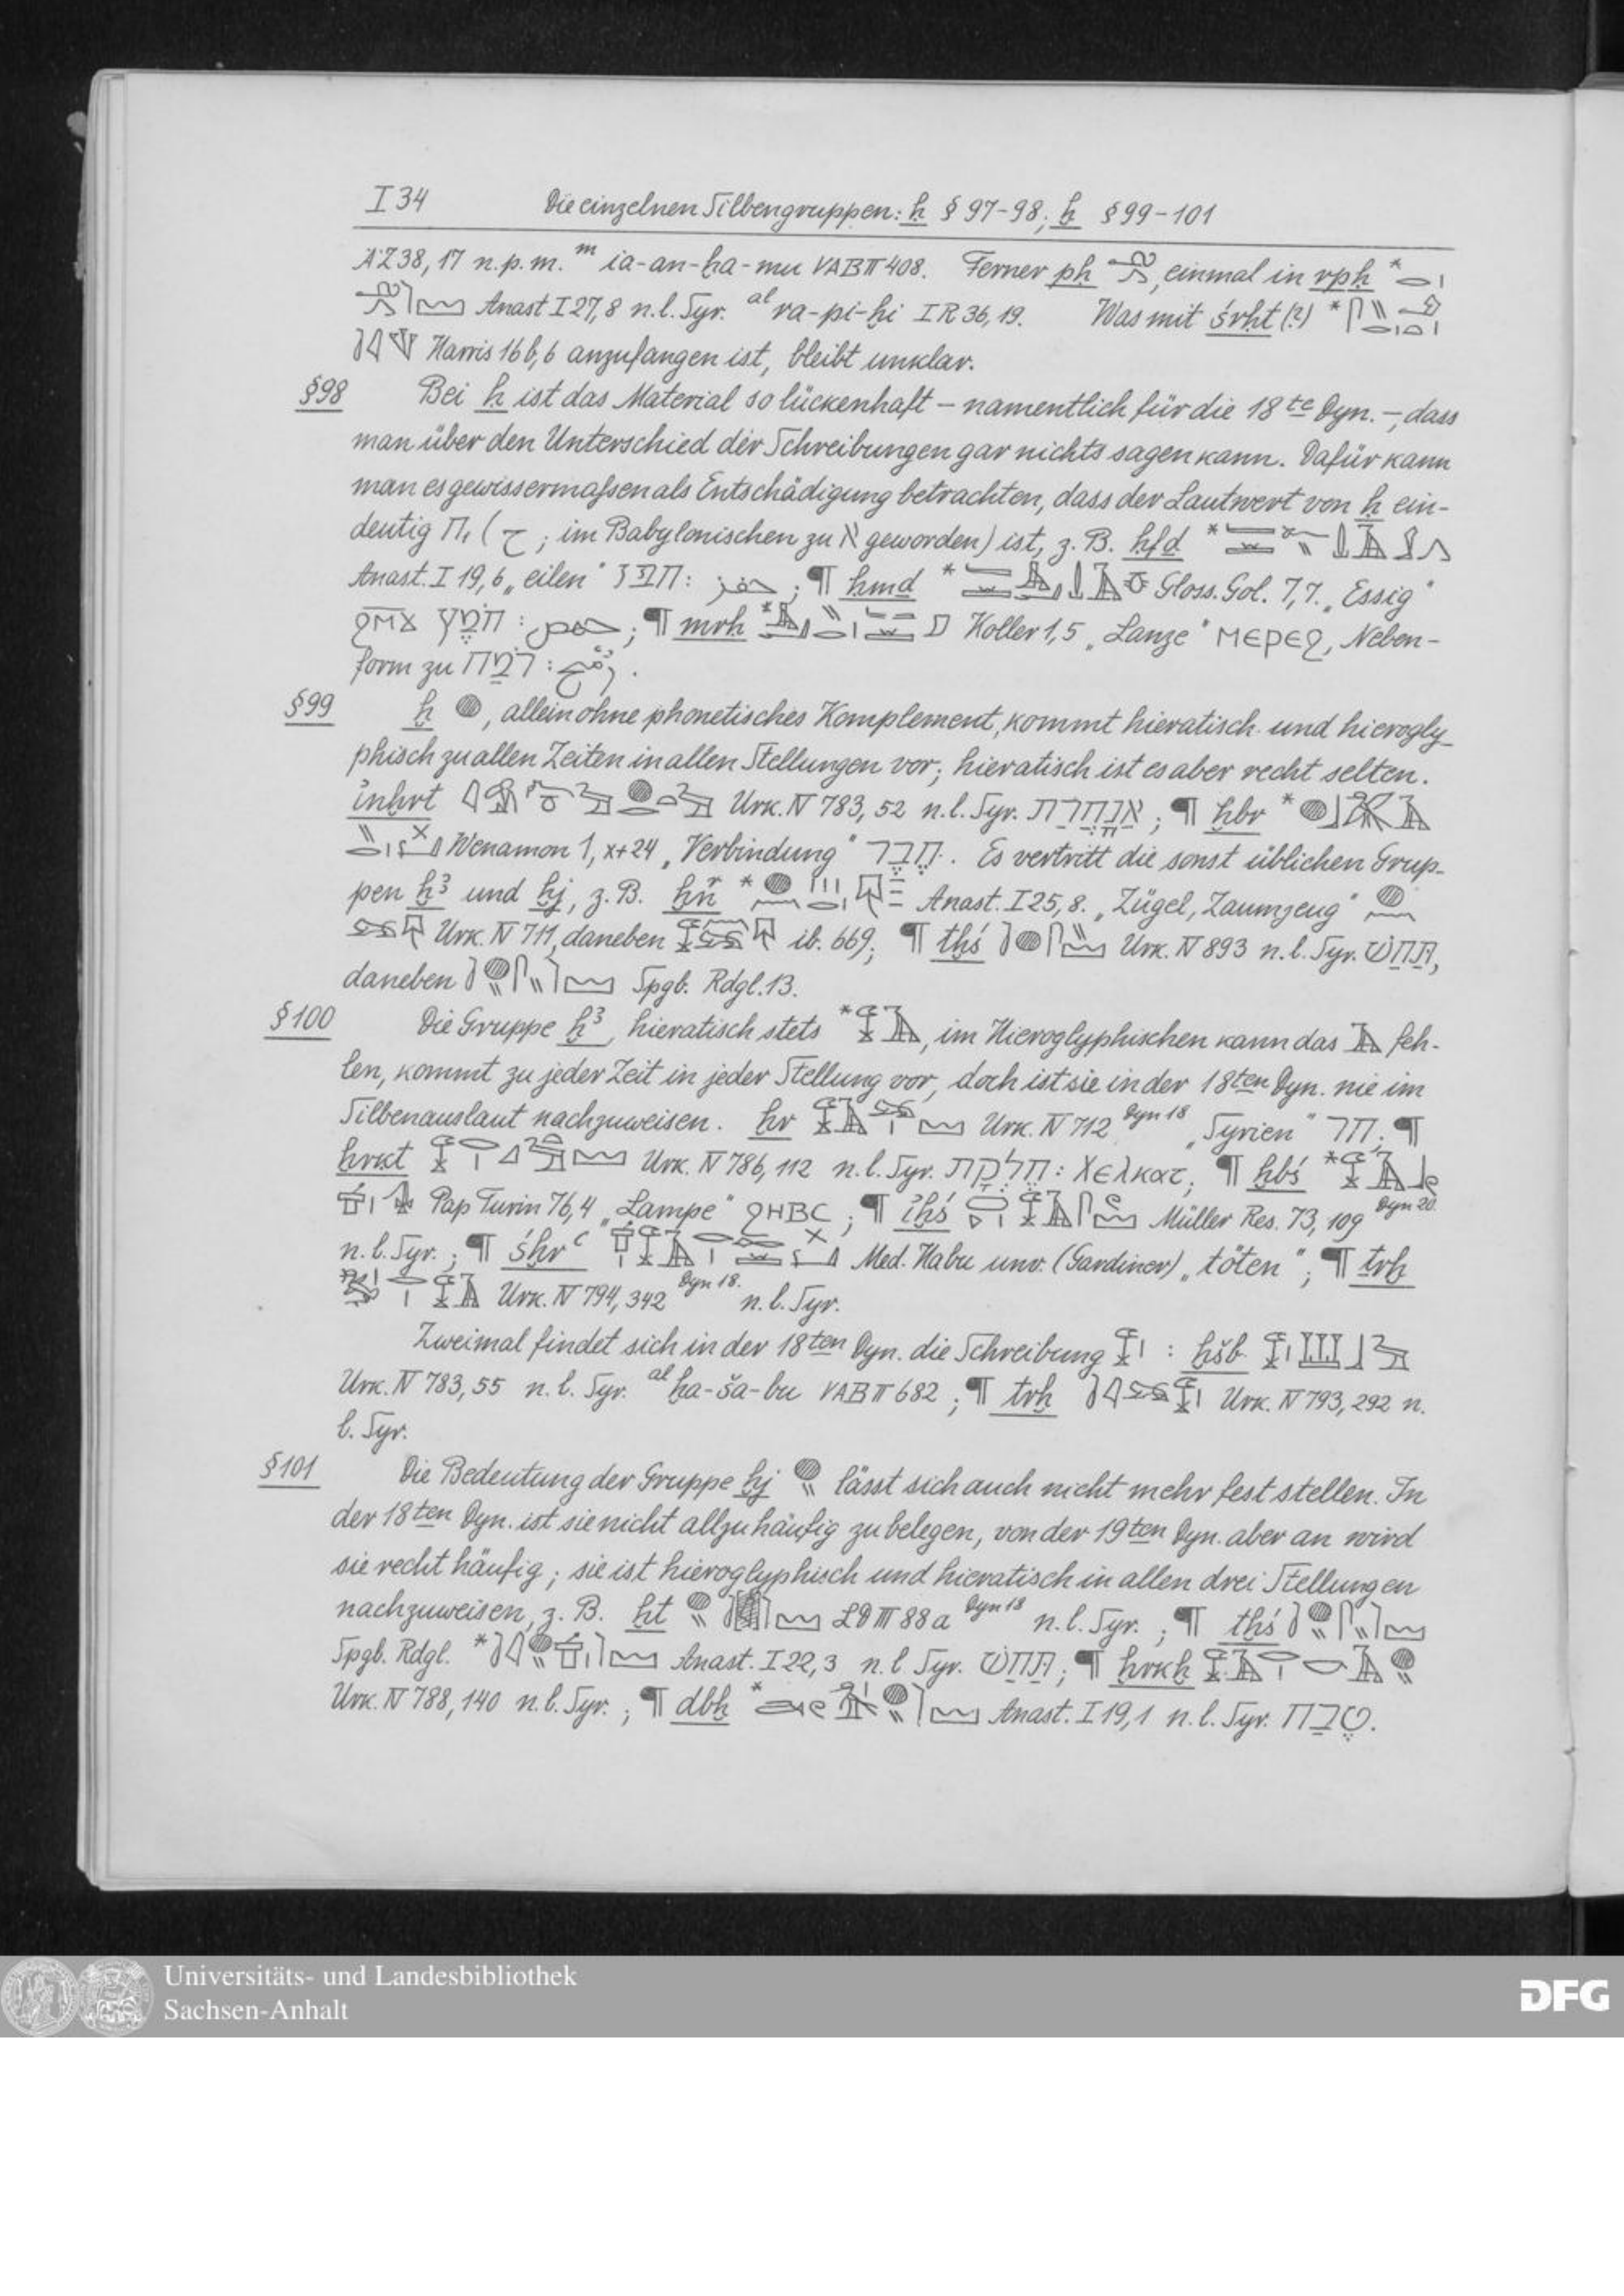 I 34 Die einzelnen Silbengruppen: ḥ § 97-98; ḫ § 99-101
ÄZ 38, 17 n.p.m. ᵐ ia-an-ḫa-mu VAB II 408. Ferner pḥ , einmal in rpḥ *
Anast I 27, 8 n.l. Syr. ᵃˡ ra-pi-ḫi I R 36, 19. Was mit śrḥt (?) *
Harris 16 b, 6 anzufangen ist, bleibt unklar.
§ 98 Bei ḥ ist das Material so lückenhaft – namentlich für die 18te Dyn. –, dass
man über den Unterschied der Schreibungen gar nichts sagen kann. Dafür kann
man es gewissermaßen als Entschädigung betrachten, dass der Lautwert von ḥ ein-
deutig ח, (ح ; im Babylonischen zu א geworden) ist, z. B. ḥfd *
Anast. I 19, 6 „eilen“ חפז : حفز ; ¶ ḥmd * Gloss. Gol. 7, 7. „Essig“
ϩⲙϫ חמץ : حمض ; ¶ mrḥ * Koller 1, 5 „Lanze“ ⲙⲉⲣⲉϩ, Neben-
form zu רמח : رمح .
§ 99 ḫ , allein ohne phonetisches Komplement, kommt hieratisch und hierogly-
phisch zu allen Zeiten in allen Stellungen vor; hieratisch ist es aber recht selten.
inḫrt Urk. IV 783, 52 n.l. Syr. אנחרת ; ¶ ḫbr *
Wenamon 1, x+24 „Verbindung“ חבר . Es vertritt die sonst üblichen Grup-
pen ḫ³ und ḫj, z. B. * Anast. I 25, 8. „Zügel, Zaumzeug“
Urk. IV 711, daneben ib. 669; ¶ tḫś Urk. IV 893 n.l. Syr. תחש,
daneben Spgb. Rdgl. 13.
§ 100 Die Gruppe ḫ³, hieratisch stets * , im Hieroglyphischen kann das feh-
len, kommt zu jeder Zeit in jeder Stellung vor, doch ist sie in der 18ten Dyn. nie im
Silbenauslaut nachzuweisen. ḫr Urk. IV 712 Dyn 18 „Syrien“ חר ; ¶
ḫrkt Urk. IV 786, 112 n.l. Syr. חלקת : Χελκατ ; ¶ ḫbś *
Pap Turin 76, 4 „Lampe“ ϩⲏⲃⲥ ; ¶ iḫś Müller Res. 73, 109 Dyn 20
n.l. Syr. ; ¶ śḫrᶜ Med. Habu unv. (Gardiner) „töten“ ; ¶ trḫ
Urk. IV 794, 342 Dyn 18. n.l. Syr.
Zweimal findet sich in der 18ten Dyn. die Schreibung : ḫšb
Urk. IV 783, 55 n.l. Syr. ᵃˡ ḫa-ša-bu VAB II 682 ; ¶ trḫ Urk. IV 793, 292 n.
l. Syr.
§ 101 Die Bedeutung der Gruppe ḫj lässt sich auch nicht mehr fest stellen. In
der 18ten Dyn. ist sie nicht allzu häufig zu belegen, von der 19ten Dyn. aber an wird
sie recht häufig; sie ist hieroglyphisch und hieratisch in allen drei Stellungen
nachzuweisen, z. B. ḫt LD III 88 a Dyn 18 n.l. Syr. ; ¶ tḫś
Spgb. Rdgl. * Anast. I 22, 3 n.l Syr. תחש ; ¶ ḫrkḫ
Urk. IV 788, 140 n.l. Syr. ; ¶ dbḫ * Anast. I 19, 1 n.l. Syr. טבח.
Universitäts- und Landesbibliothek
Sachsen-Anhalt
DFG